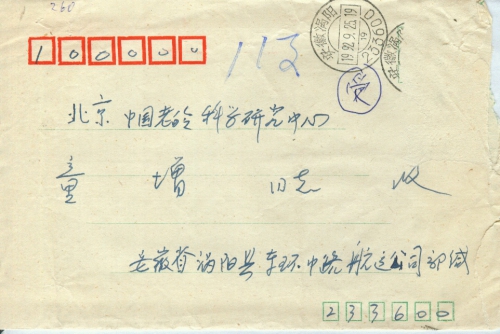 260
100000
113
安徽涡阳
1992.9.25.19
233600
北京 中国老龄科学研究中心
童 增 同志 收
安徽省涡阳县东环中路航运公司郭缄
233600